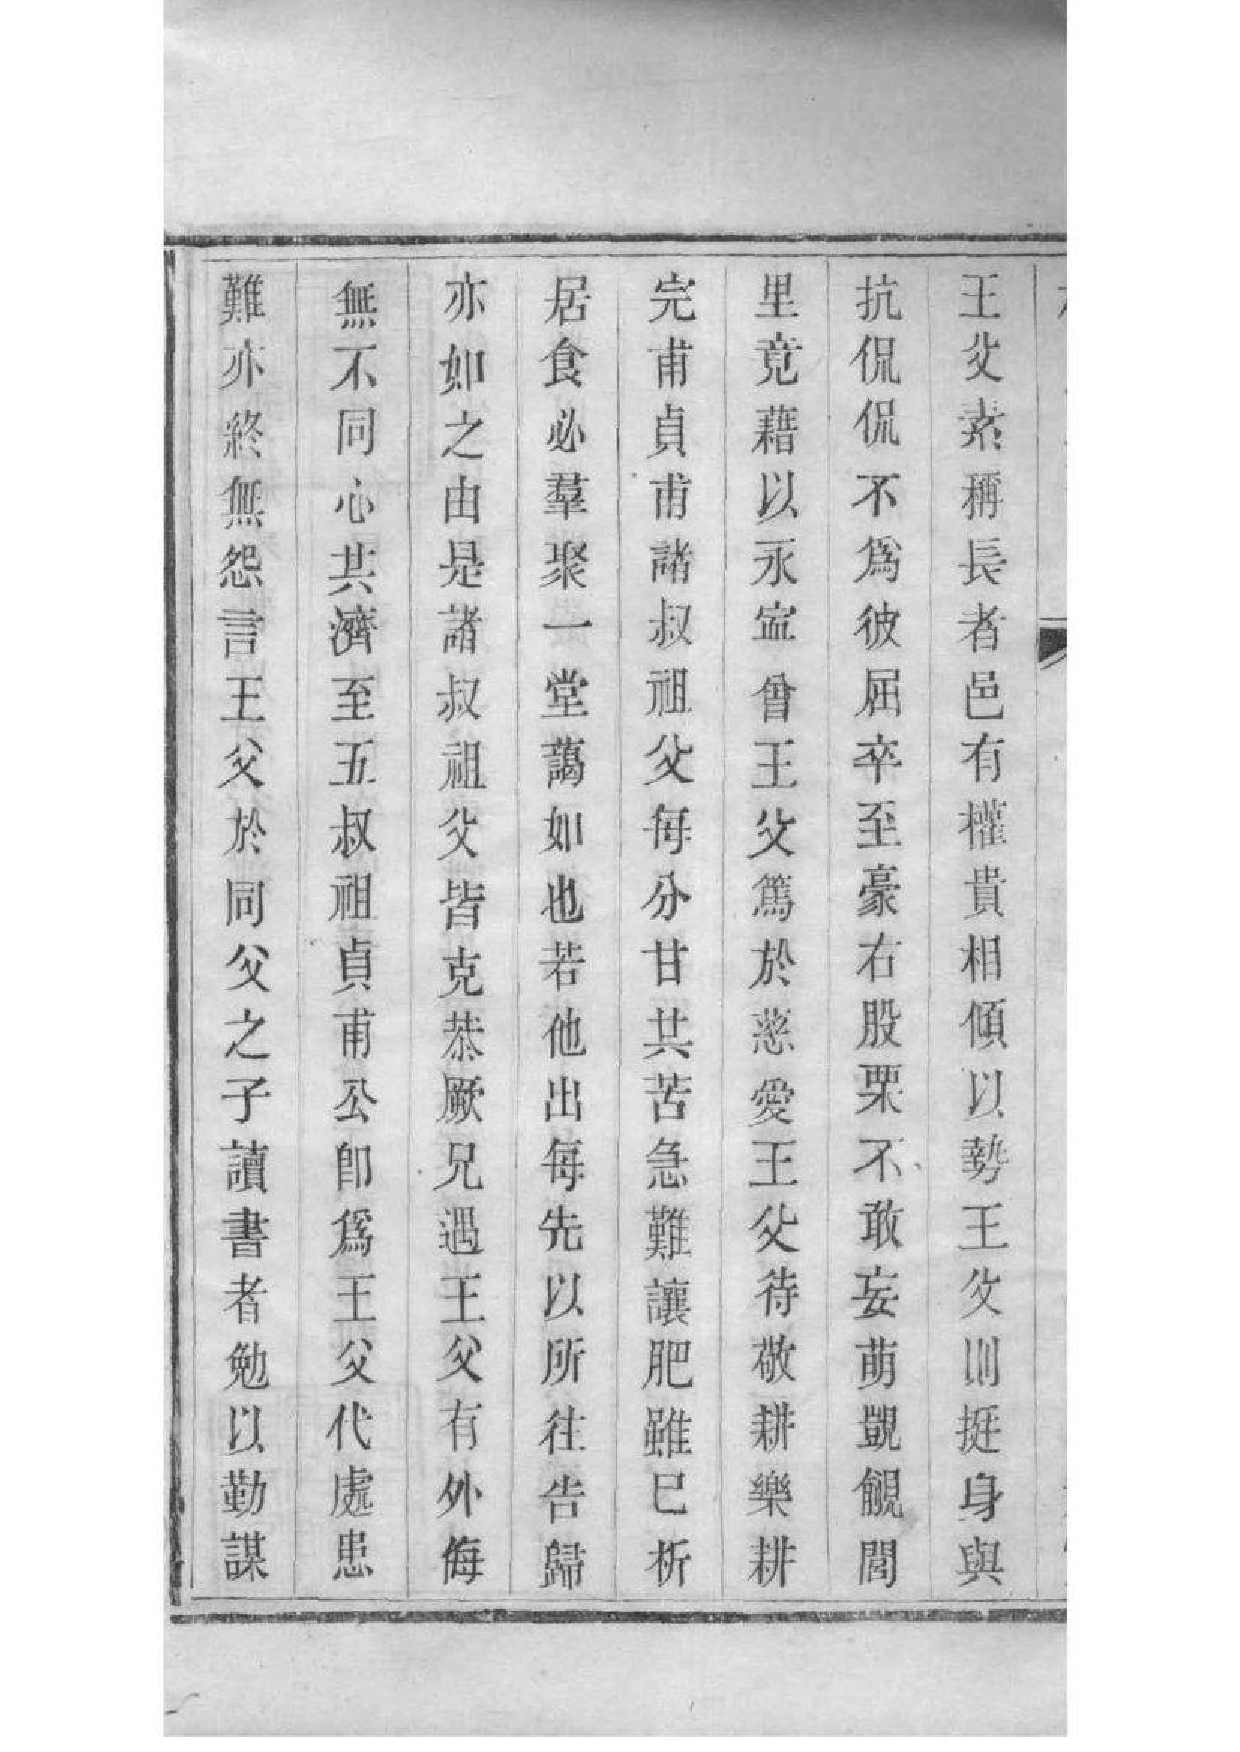 王父素稱長者邑有權貴相傾以勢王父則挺身與
抗侃侃不為彼屈卒至豪右股栗不敢妄萌覬覦閭
里竟藉以永寍曾王父篤於慈愛王父待敬耕樂耕
完甫貞甫諸叔祖父每分甘共苦急難讓肥雖已析
居食必羣聚一堂藹如也若他出每先以所往告歸
亦如之由是諸叔祖父皆克恭厥兄遇王父有外侮
無不同心共濟至五叔祖貞甫公卽爲王父代處患
難亦終無怨言王父於同父之子讀書者勉以勤謀